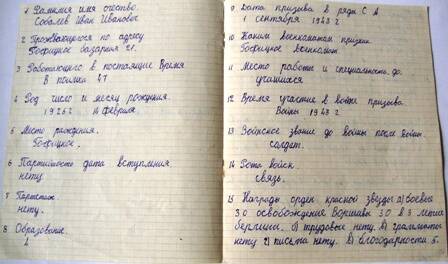 1 Фамилия имя отчество.
Соболев Иван Иванович
2 Проживающего по адресу
Бофицкое базарная 21.
3 Работающего в настоящие Время
В посёлки 47
4 Год число и месяц рождения.
1926 г 16 февраля.
5 Место рождения.
Бофицкое.
6 Партийность дата вступления
нету
7 Партстаж
нету.
8 Образование.
2
9 Дата призыва в ряды С А
1 сентября 1943 г
10 Каким военкоматом призван
Бофицкое военкомат
11 Место работы и специальность до.
учашися
12 Время участие в войны призыва.
Войны 1943 г
13 Воинское звание до войны после войны.
солдат.
14 Рота войск
связь.
15 Награды орден красной звезды а) боевые
3.0 освобождение Варшавы 3.0 в 3 летия
берлины. б) трудовые нету. в) грамматы
нету г) писма нету. д) благодарности 5.